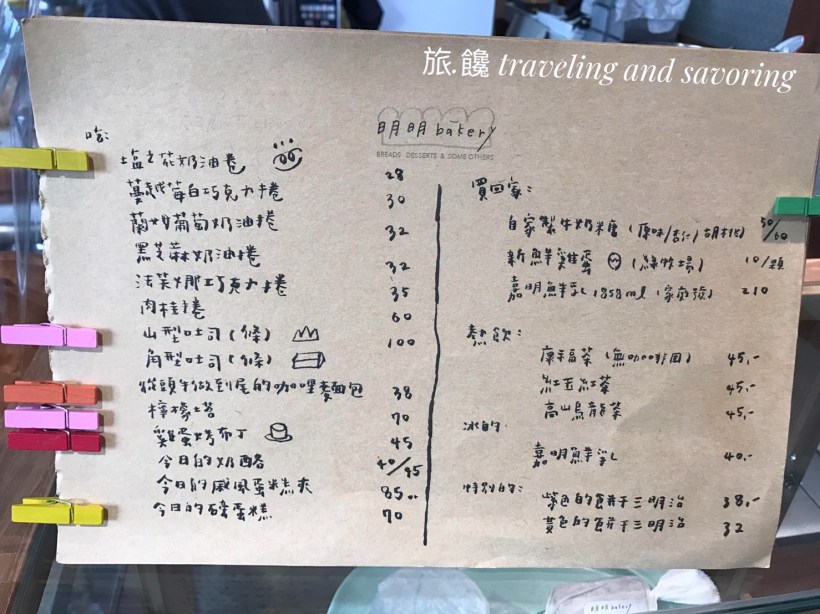 旅.饞 traveling and savoring
明明 bakery
BREADS DESSERTS & SOME OTHERS
吃:
塩之花奶油卷 28
蔓越莓白巧克力捲 30
蘭姆葡萄奶油捲 32
黑芝麻奶油捲 32
法芙娜巧克力捲 35
肉桂捲 60
山型吐司(條) 100
角型吐司(條)
從頭牛做到尾的咖哩麵包 38
檸檬塔 70
雞蛋烤布丁 45
今日的奶酪 40/45
今日的戚風蛋糕夾 85
今日的磅蛋糕 70
買回家:
自家製牛奶糖(原味/杏仁/胡桃) 50/60
新鮮雞蛋(綠牧場) 10/顆
嘉明鮮乳 1858ml(家庭號) 210
熱飲:
康福茶(無咖啡因) 45.-
紅玉紅茶 45.-
高山烏龍茶 45.-
冰的:
嘉明鮮乳 40.-
特別的:
紫色的餅干三明治 38.-
黃色的餅干三明治 32
明明 bakery